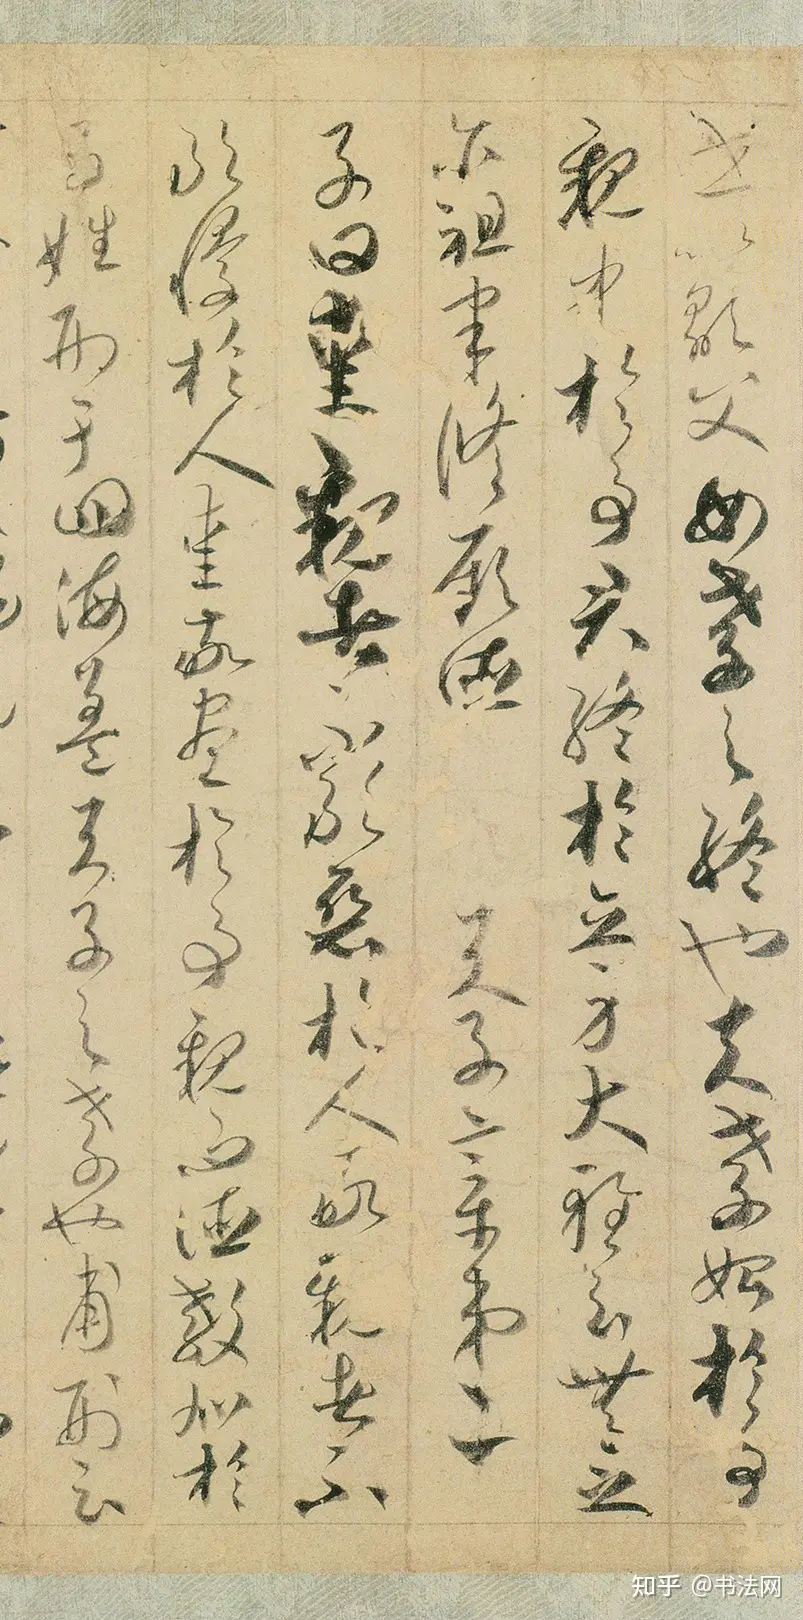 世以顯父母孝之終也夫孝始於事
親中於事君終於立身大雅云無念
尒祖聿脩厥德 天子章第二
子曰愛親者不敢惡於人敬親者不
敢慢於人愛敬盡於事親而德教加於
百姓刑于四海蓋天子之孝也甫刑云
知乎 @书法网